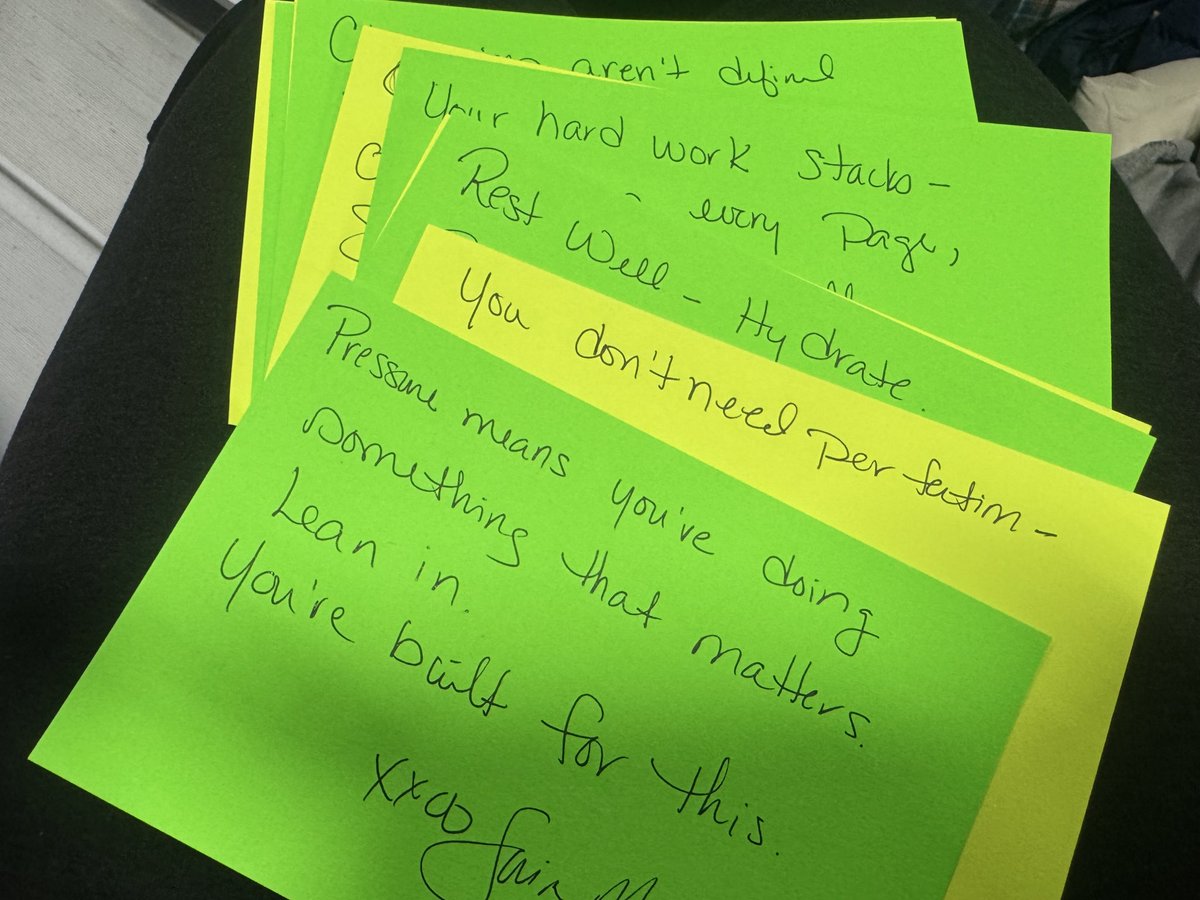 aren't defined
Your hard work stacks-
every page,
Rest Well - Hydrate.
You don't need perfection-
Pressure means you're doing
something that matters.
Lean in.
You're built for this.
xxoo